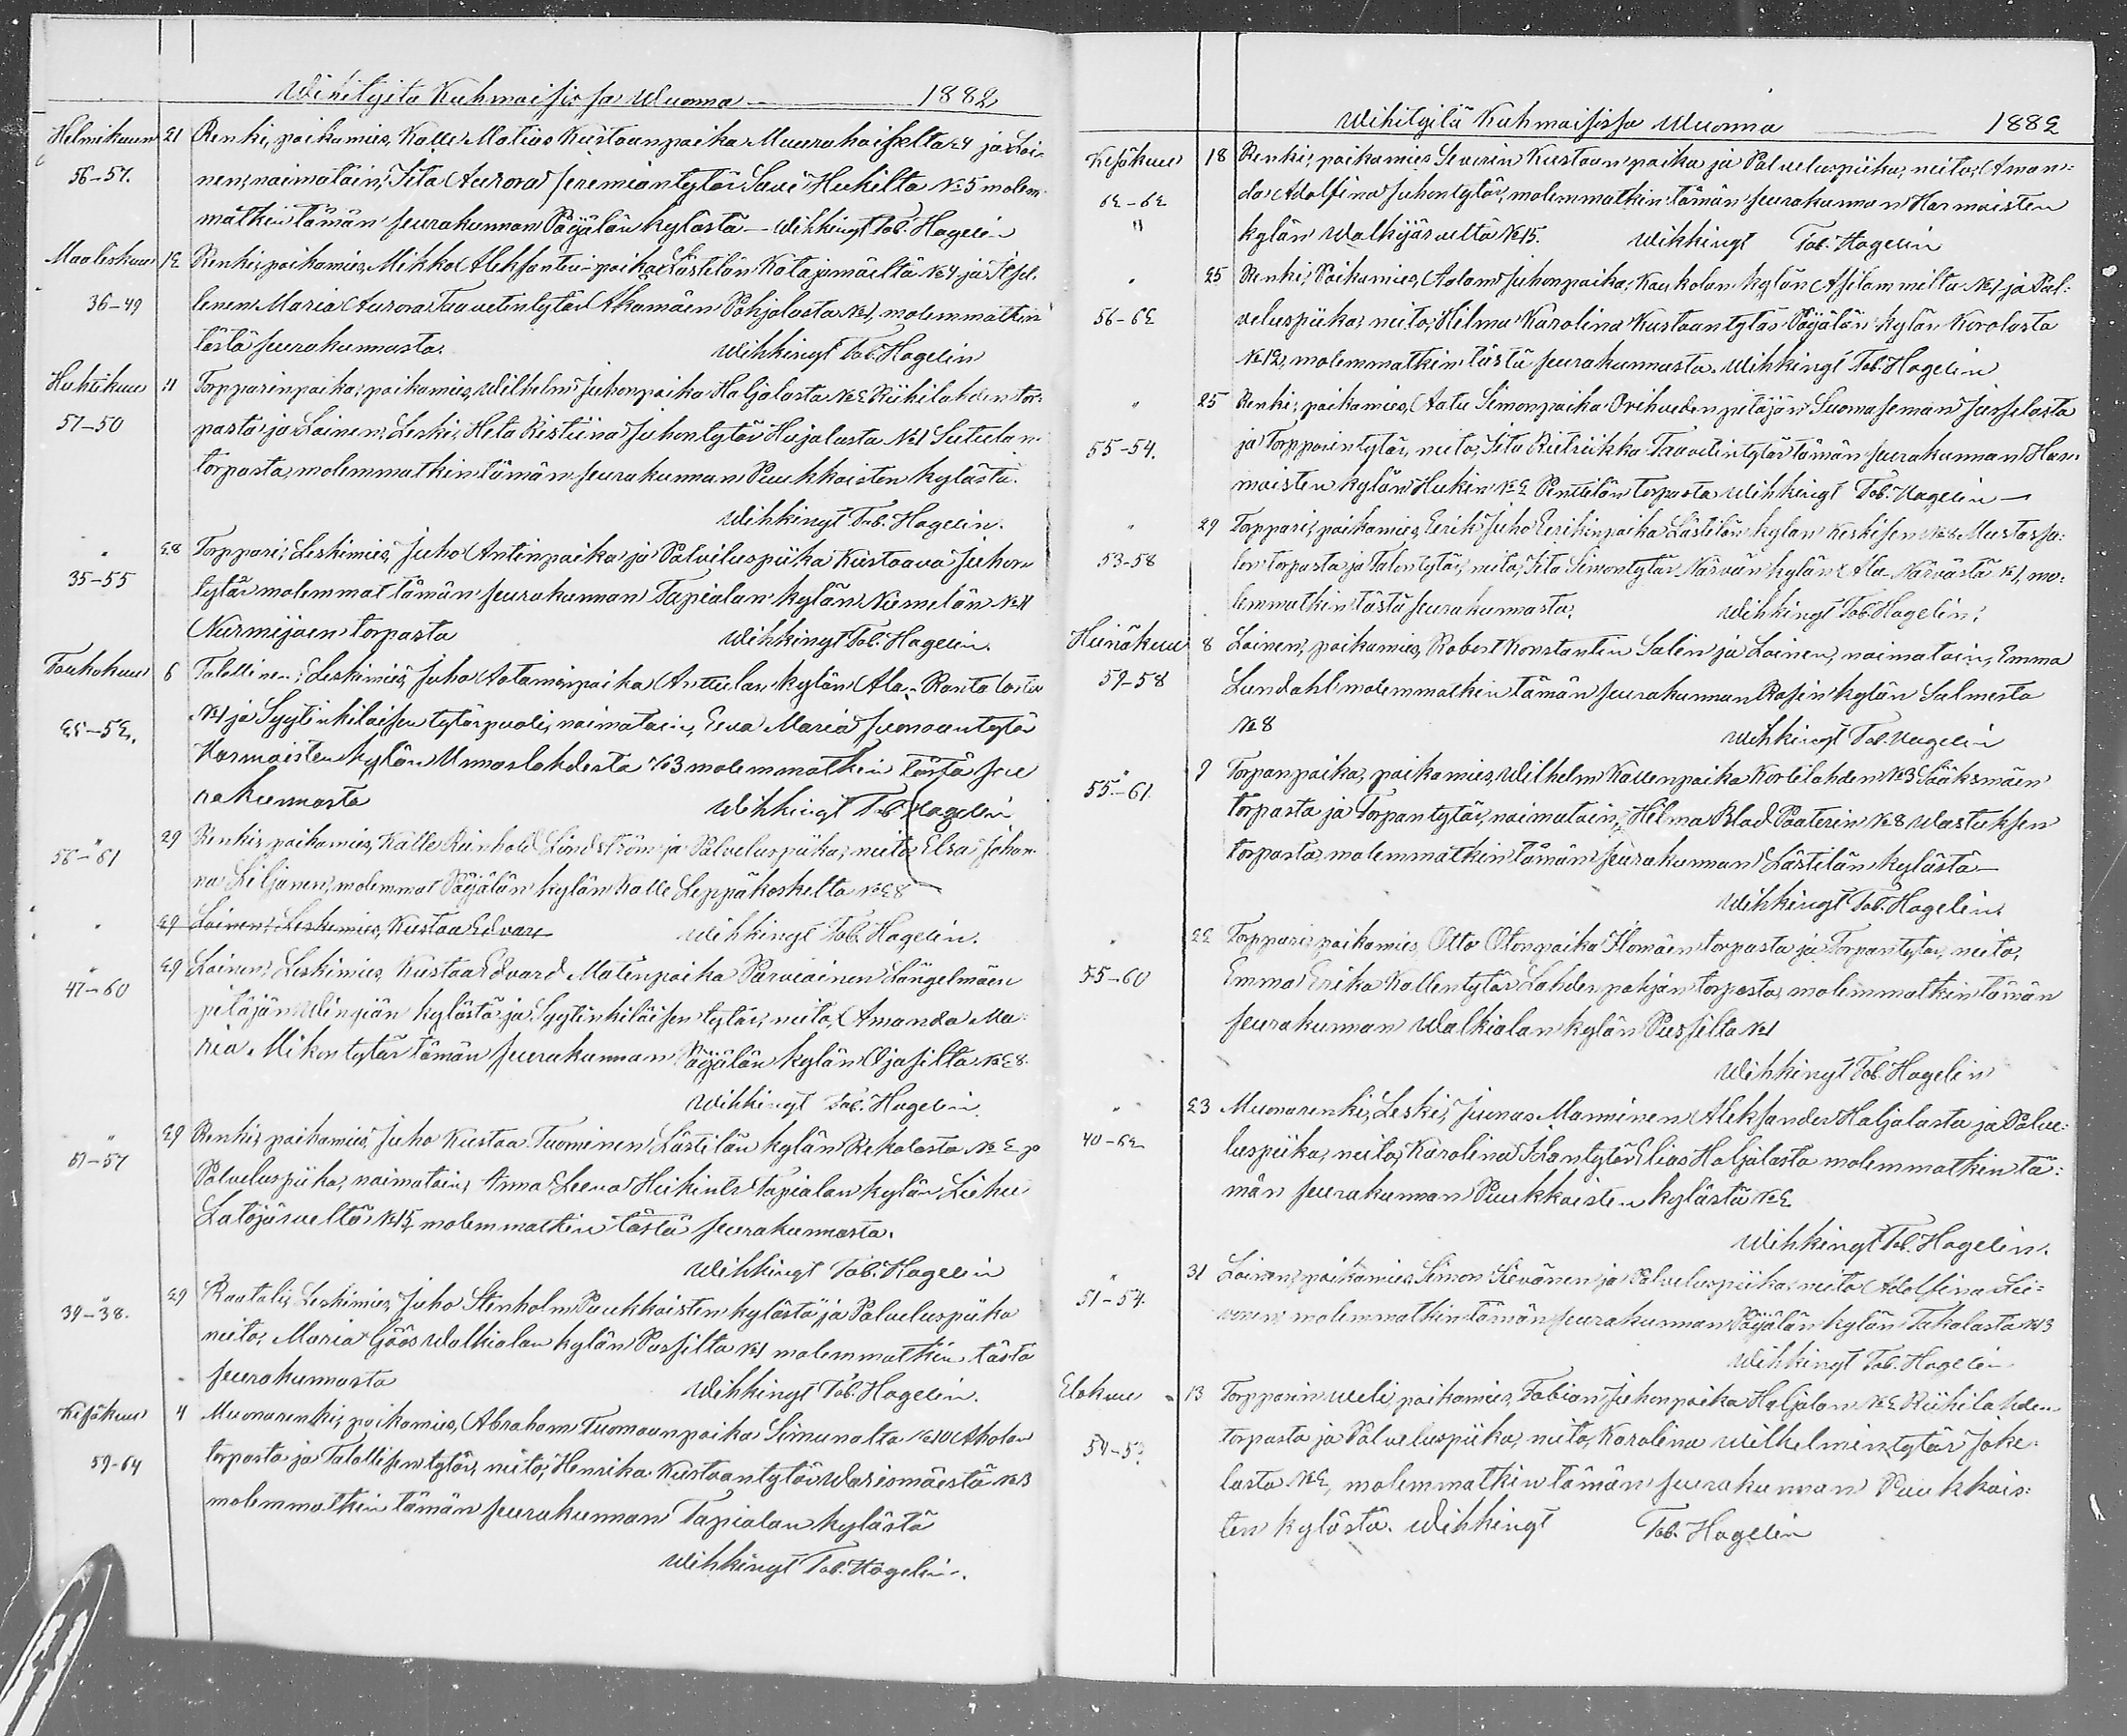 Wihityitä Kuhmaisissa Wuonna 1882
Helmikuun 21 Renki, poikamies, Kalle Matias Kustaanpoika Muurahaiselta 24 ja Loi-
56-57. nen, naimatoin, Iita Aurora Jeremiantytär Savi Hukilta №5 molem-
matkin tämän seurakunnan Päyälän kylästä - Wihkinyt Tob. Hagelin
Maaliskuu 12 Renki, poikamies, Mikko Aleksanterinpoika Lästilän Katajamäeltä №4 ja Itsel-
36-49 linen Maria Aurora Taavetintytär Akamäen Pohjolasta №1, molemmatkin
tästä seurakunnasta. Wihkinyt Tob. Hagelin
Huhtikuu 11 Torpparinpoika, poikamies, Wilhelm Juhonpoika Haljalasta №2 Riihilahden tor-
57-50 pasta ja Loinen, Leski, Heta Ristiina Juhontytär Hujalasta №1 Sutulan
torpasta, molemmatkin tämän seurakunnan Puukkoisten kylästä.
Wihkinyt Tob. Hagelin.
" 28 Torppari, Leskimies, Juho Antinpoika ja Palveluspiika Kustaava Juhon-
35-55 tytär molemmat tämän seurakunnan Tapialan kylän Niemelän №11
Nurmijaen torpasta Wihkinyt Tob. Hagelin.
Toukokuu 6 Talollinen, Leskimies, Juho Aataminpoika Anttulan kylän Ala-Rantalasta
25-52. №1 ja Syytinkiläisen tytärpuoli, naimatoin, Eeva Maria Juonaantytär
Harmoisten kylän Unnaslahdesta №3 molemmatkin tästä seu
rakunnasta Wihkinyt Tob. Hagelin
56-61 29 Renki, poikamies, Kalle Reinhold Lindström ja Palveluspiika, neito Elsa Johan-
na Liljanen, molemmat Päyälän kylän Kalle Leppäkoskelta №28
" 29 Loinen, Leskimies, Kustaa Edvart Wihkinyt Tob. Hagelin.
47-60 29 Loinen, Leskimies, Kustaa Edvard Matinpoika Parviainen Längelmäen
pitäjän kylästä ja Syytinkiläisen tytär, neito, Amanda Ma-
ria Mikontytär tämän seurakunnan Päyälän kylän Ojasilta №28.
Wihkinyt Tob. Hagelin.
61-57 29 Renki, poikamies, Juho Kustaa Tuominen Lästilän kylän Rekolasta №2 ja
Palveluspiika, naimatoin, Anna Leena Heikintr Tapialan kylän Lieku
Latojärveltä №15, molemmatkin tästä seurakunnasta.
Wihkinyt Tob. Hagelin
39-38. 29 Räätäli, Leskimies, Juho Stenholm Puukkoisten kylästä ja Palveluspiika
neito, Maria Göös Walkialan kylän Pussilta №1 molemmatkin tästä
seurakunnasta Wihkinyt Tob. Hagelin.
Kesäkuu 4 Muonarenki, poikamies, Abraham Tuomaanpoika Simunalta №10 Aholan
59-64 torpasta ja Talollisen tytär, neito, Henrika Kustaantytär Warismäestä №3
molemmatkin tämän seurakunnan Tapialan kylästä
Wihkinyt Tob. Hagelin.
Wihityitä Kuhmaisissa Wuonna 1882
Kesäkuu 18 Renki, poikamies Severin Kustaanpoika ja Palveluspiika, neito, Aman-
62-62 da Adolfina Juhontytär, molemmatkin tämän seurakunnan Harmoisten
" kylän Walkijärveltä №15. Wihkinyt Tob. Hagelin
" 25 Renki, Poikamies, Aatam Juhonpoika, Kaukolan kylän Asilammilta №1 ja Pal-
56-62 veluspiika, neito, Hilma Karolina Kustaantytär Päyälän kylän Korolasta
№12, molemmatkin tästä seurakunnasta. Wihkinyt Tob. Hagelin
" 25 Renki, poikamies, Aatu Simonpoika Oriweden pitäjän Suomaseman Jusselasta
55-54. ja Torpparintytär, neito, Iita Rietriikka Taavetintytär tämän seurakunnan Har-
moisten kylän Hukin №2 Penttilän torpasta Wihkinyt Tob. Hagelin -
" 29 Torppari, poikamies, Eerik Juho Eerikinpoika Lästilän kylän Keskisen Mustassa-
53-58 lon torpasta ja Talontytär, neito, Iita Simontytär Närvän kylän Ala-Närvästä №1, mo-
lemmatkin tästä seurakunnasta. Wihkinyt Tob. Hagelin.
Heinäkuu 8 Loinen, poikamies, Robert Konstantin Salin ja Loinen, naimatoin, Emma
59-58 Lundahl molemmatkin tämän seurakunnan Pohjan kylän Salmesta
№8 Wihkinyt Tob. Hagelin
55-61. 9 Torpanpoika, poikamies, Wilhelm Kallenpoika Kortilahden №3 Sääksmäen
torpasta ja Torpantytär, naimatoin, Hilma Blad Paaterin №8 Wastuksen
torpasta, molemmatkin tämän seurakunnan Lästilän kylästä -
Wihkinyt Tob. Hagelin.
" 22 Torppari, poikamies, Otto Otonpoika Ilomäen torpasta ja Torpantytär, neito,
55-60 Emma Erika Kallentytär Lahdenpohjan torpasta, molemmatkin tämän
seurakunnan Walkialan kylän Pussilta №1
Wihkinyt Tob. Hagelin
" 23 Muonarenki, Leski, Juonas Manninen Aleksander Haljalasta ja Palve-
40-62 luspiika, neito, Karolina Islantytär Elias Haljalasta molemmatkin tä-
män seurakunnan Puukkoisten kylästä №2
Wihkinyt Tob. Hagelin.
" 31 Loinen, poikamies Simon Sievänen ja Palveluspiika, neito Adolfina Lie-
51-54. vonen, molemmatkin tämän seurakunnan Päyälän kylän Takalasta №13
Wihkinyt Tob. Hagelin
Elokuu 13 Torpparin weli, poikamies, Fabian Juhonpoika Haljalan №2 Riihilahden
torpasta ja Palveluspiika, neito, Karolina Wilhelmintytär Joke-
lasta №2, molemmatkin tämän seurakunnan Puukkois-
ten kylästä. Wihkinyt Tob. Hagelin